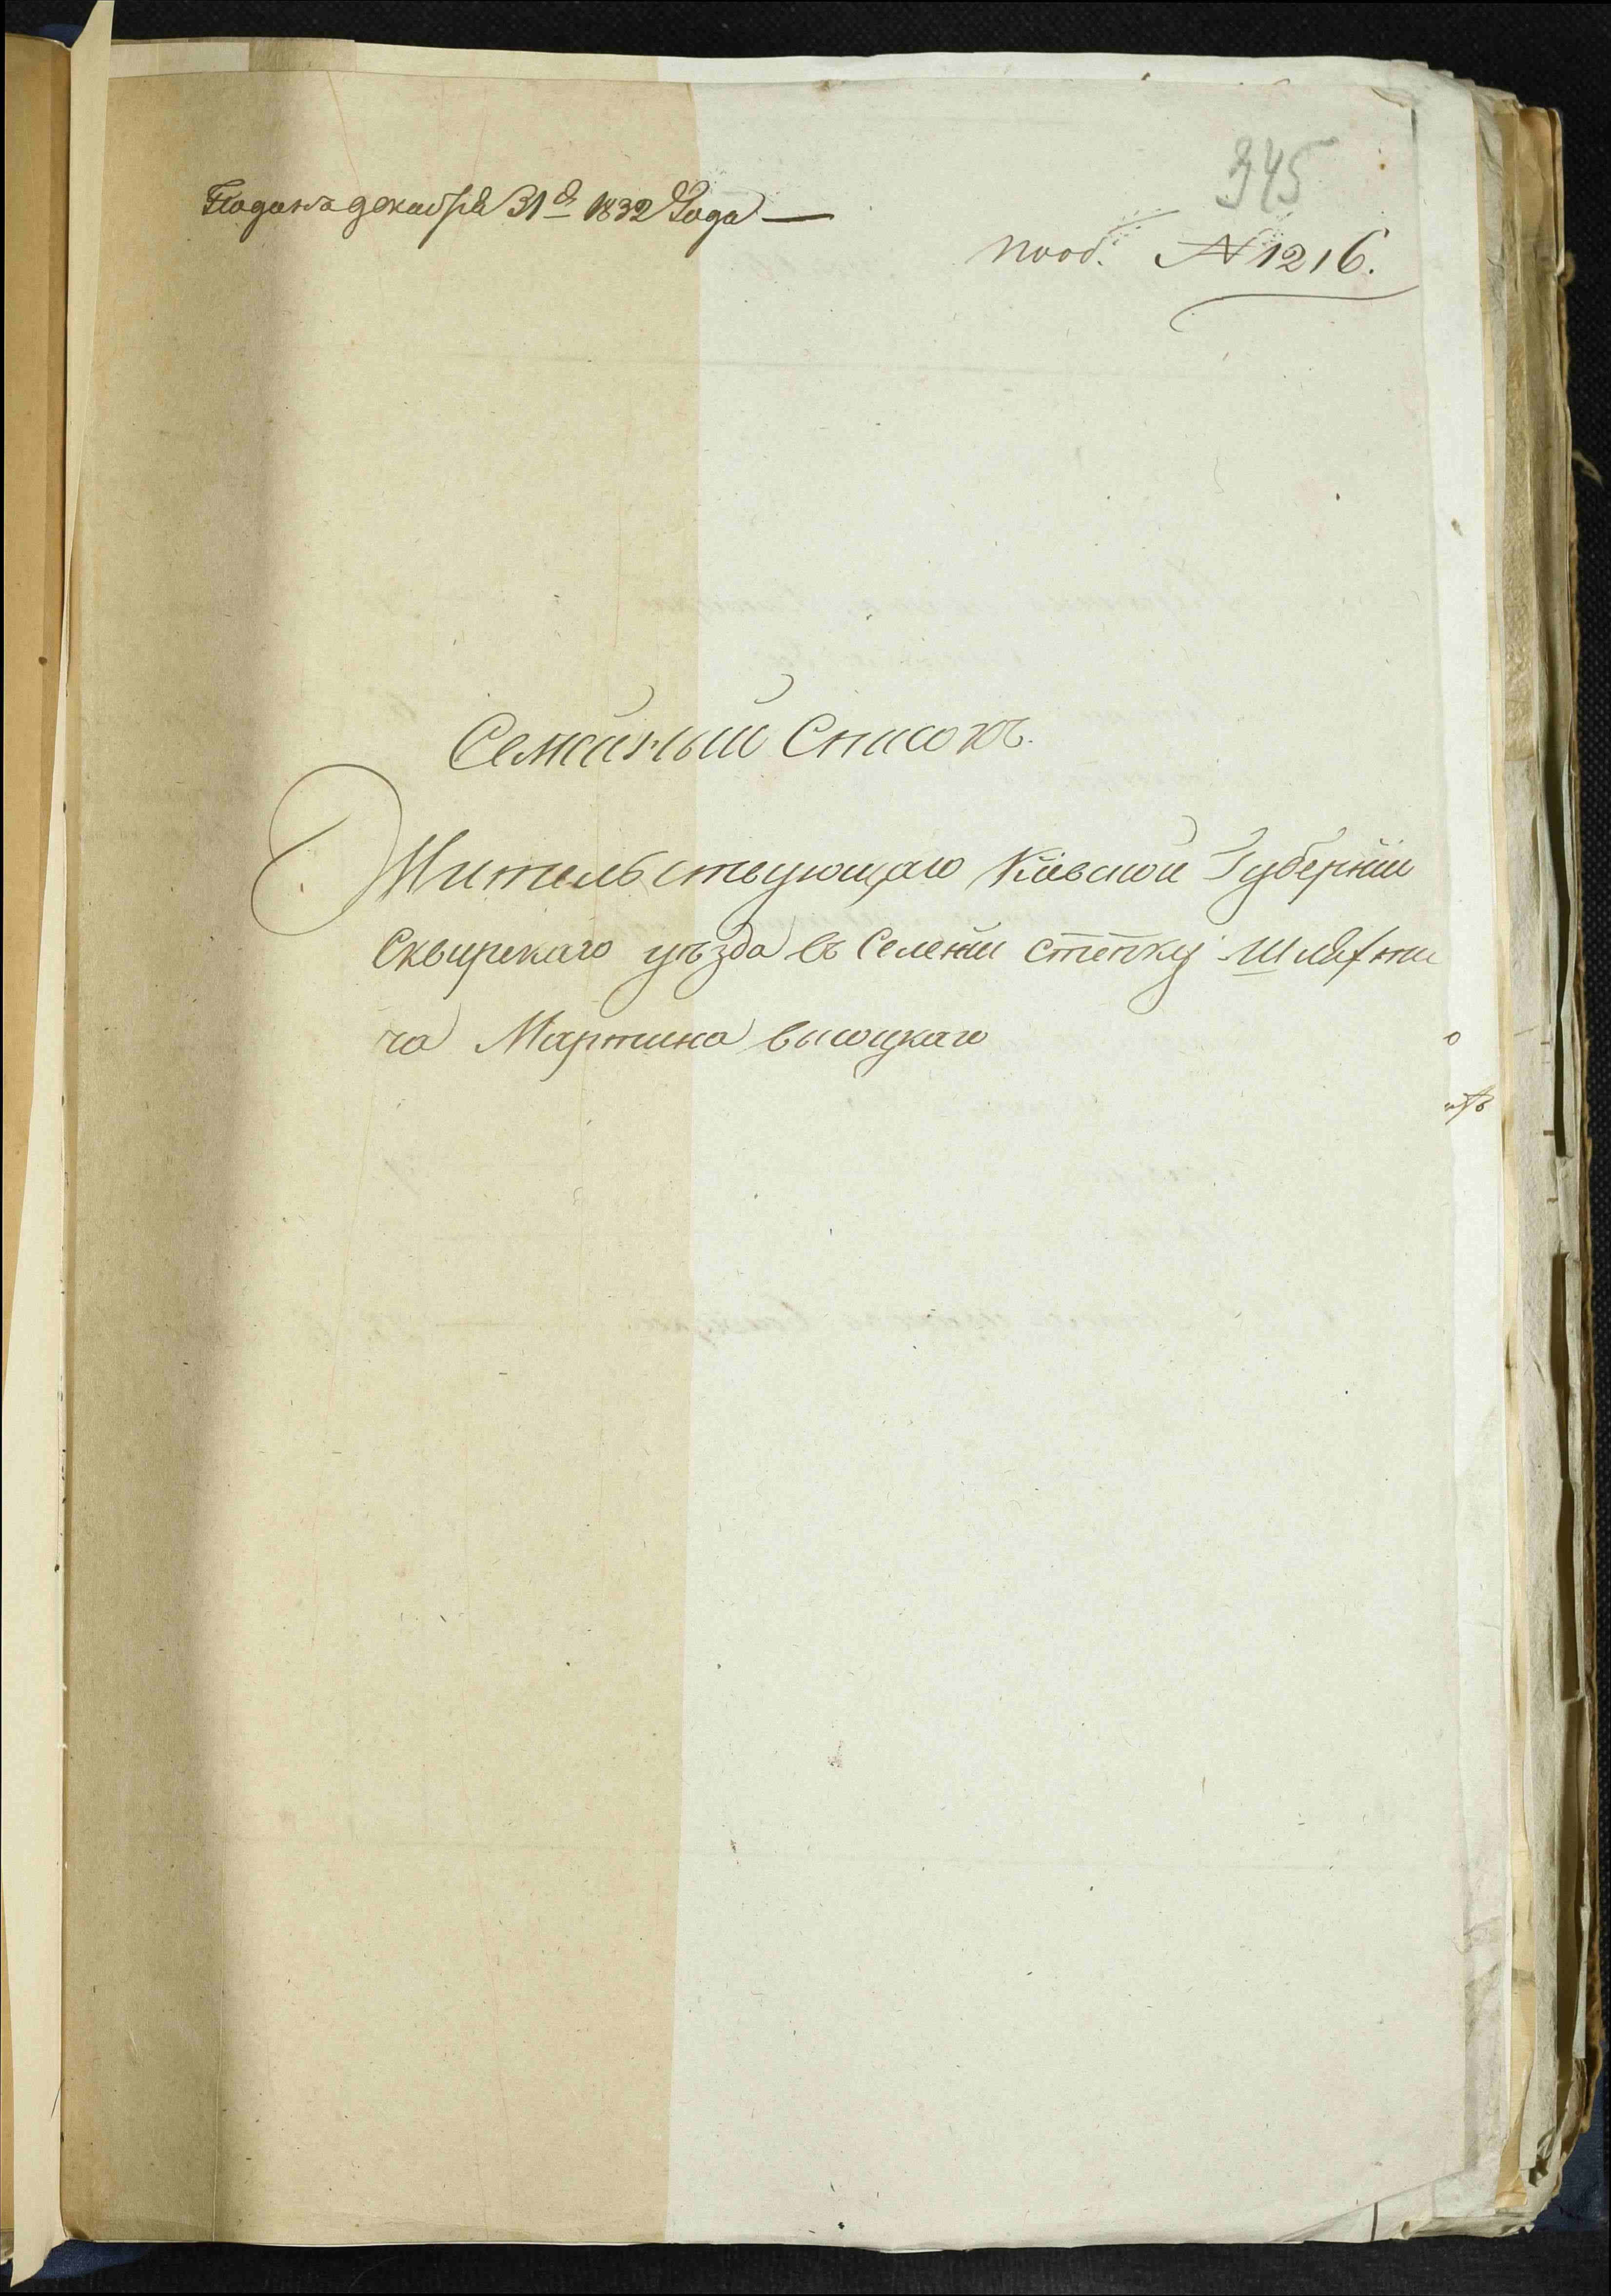 345
Поданъ декабря 31 д 1832 Года —
№ 1216.
Семейный Списокъ.
Жительствующаго Кіевской Губерніи
Сквирскаго уѣзда въ Селеніи Степку Шляхти
ча Мартина Высоцкаго